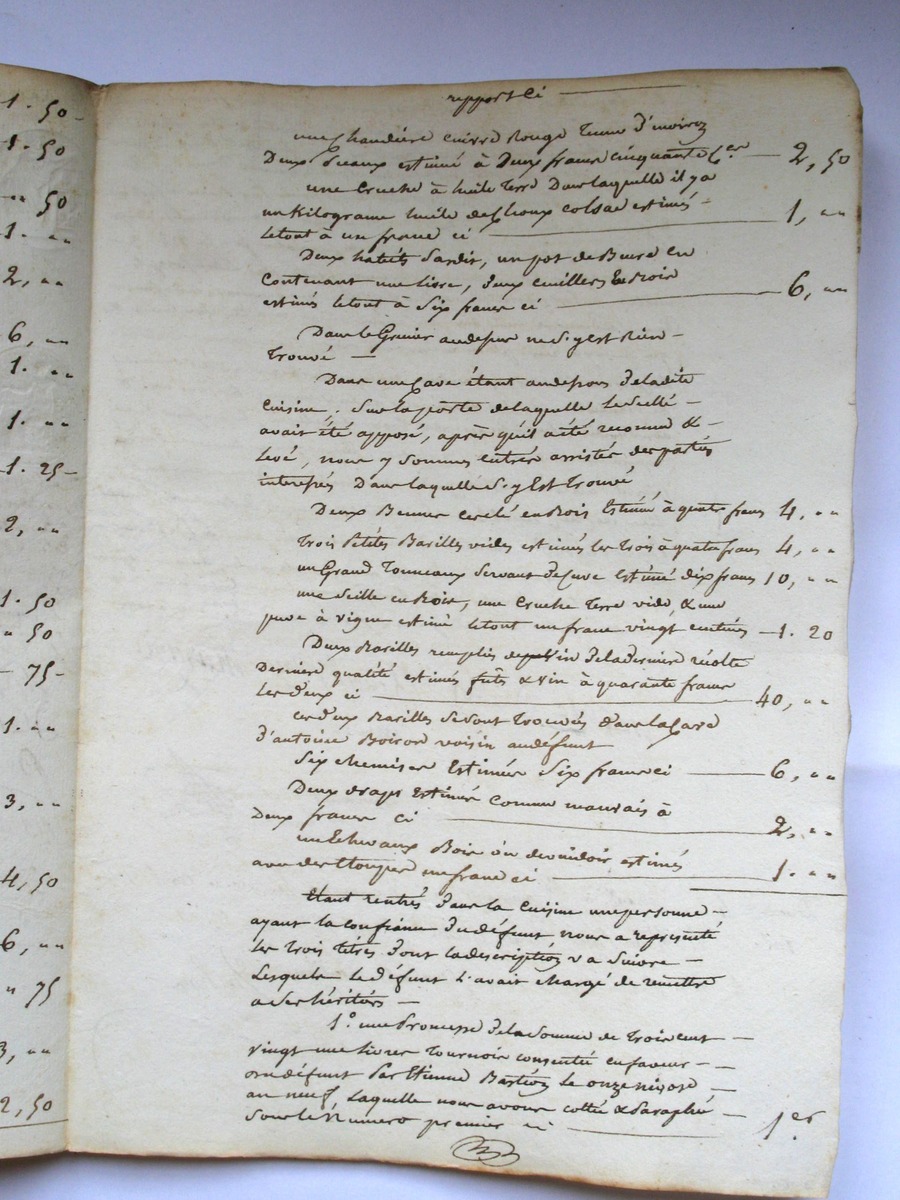 1. 50
1. 50
50
1. "
2, "
6, "
1. "
1. "
1. 25
2, "
1. 50
" 50
75
1. "
3, "
4, 50
6, "
" 75
3, "
2, 50
rapport Ci
une Chaudiere cuivre Rouge
Deux Seaux estimé à Deux francs cinquante C.es 2, 50
une Cruche à huile Terre Dans laquelle il y a
un Kilograme huile de Choux colsac estimés
letout à un franc ci 1, "
Deux , un pot de Beure en
Contenant une livre, Deux cuilliers En Bois
estimés letout à Six francs ci 6, "
Dans le Grenier audessus ne S'y est Rien
Trouvé
Dans une Cave étant audessous de ladite
Cuisine, Sur la porte de laquelle le Scellé
avait été apposé, après qu'il a été reconnu &
levé, nous y Sommes entrés assistés des parties
interessés Dans laquelle S'y Est Trouvé
Deux Bennes Cerclé en Bois Estimé à quatre francs 4, "
Trois Petites Barilles vides estimés les Trois à quatre francs 4, "
un Grand Tonneaux Servant de Cuve Estimé dix francs 10, "
une Seille en Bois, une Cruche Terre vide & une
à vigne estimé letout un franc vingt centimes 1. 20
Deux Barilles remplies de Vin de la Derniere récolte
Derniere qualité estimés futs & vin à quarante francs
les Deux ci 40, "
ces Deux Barilles Se sont Trouvés Dans la Cave
D'antoine Boiron voisin au défunt
Six chemises Estimées Six francs ci 6, "
Deux draps Estimés comme mauvais à
Deux francs ci 2, "
un Echevaux Bois ou devidoir estimés
avec des Etoupes un franc ci 1. "
Etant rentrés Dans la Cuisine une personne
ayant la confiance Du défunt nous a representé
les Trois titres Dont la description va Suivre
Lesquels le défunt l'avait chargé de remettre
a Ses héritiers
1.o une Promesse de la Somme de Trois cent
vingt une livres Tournois consentie en faveur
du défunt par Etienne Bastion le onze nivose
an neuf, laquelle nous avons cottée & Paraphé
Sous le Numero premier ci 1.er